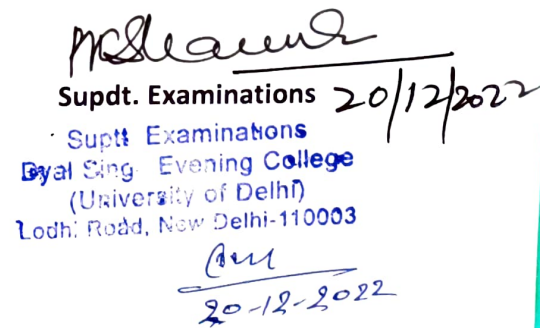 Supdt. Examinations 20/12/2022
Suptt Examinations
Dyal Sing Evening College
(University of Delhi)
Lodhi Road, New Delhi-110003
20-12-2022